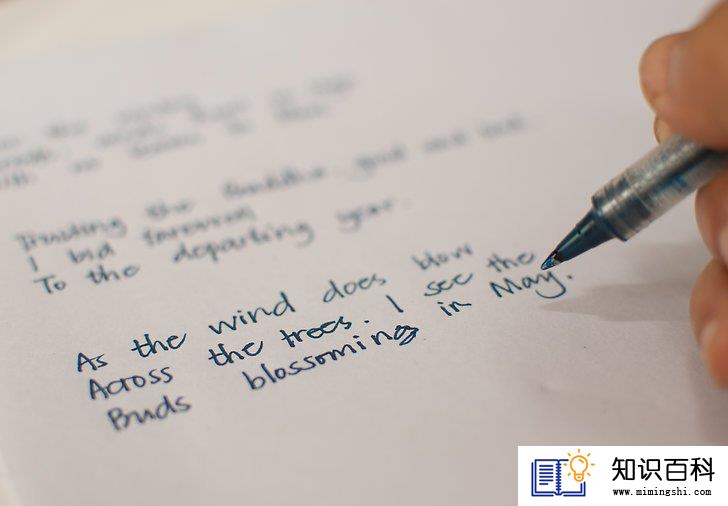 Trusting the Buddha, good and bad,
I bid farewell
To the departing year.
As the wind does blow
Across the trees. I see the
Buds blossoming in May.
知识百科
www.mimingshi.com